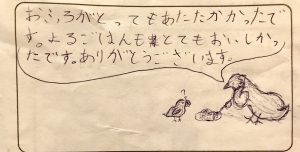 おふろがとってもあたたかかったで
す。よるごはんもとてもおいしかっ
たです。ありがとうございます。